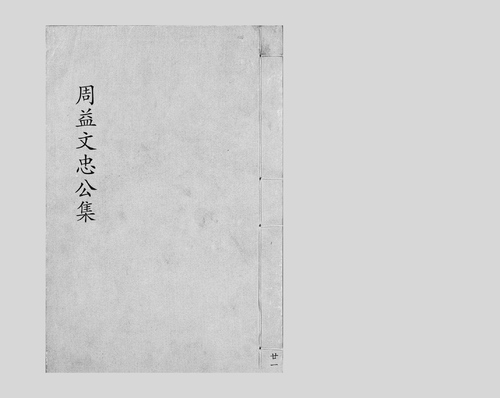 周益文忠公集
廿一